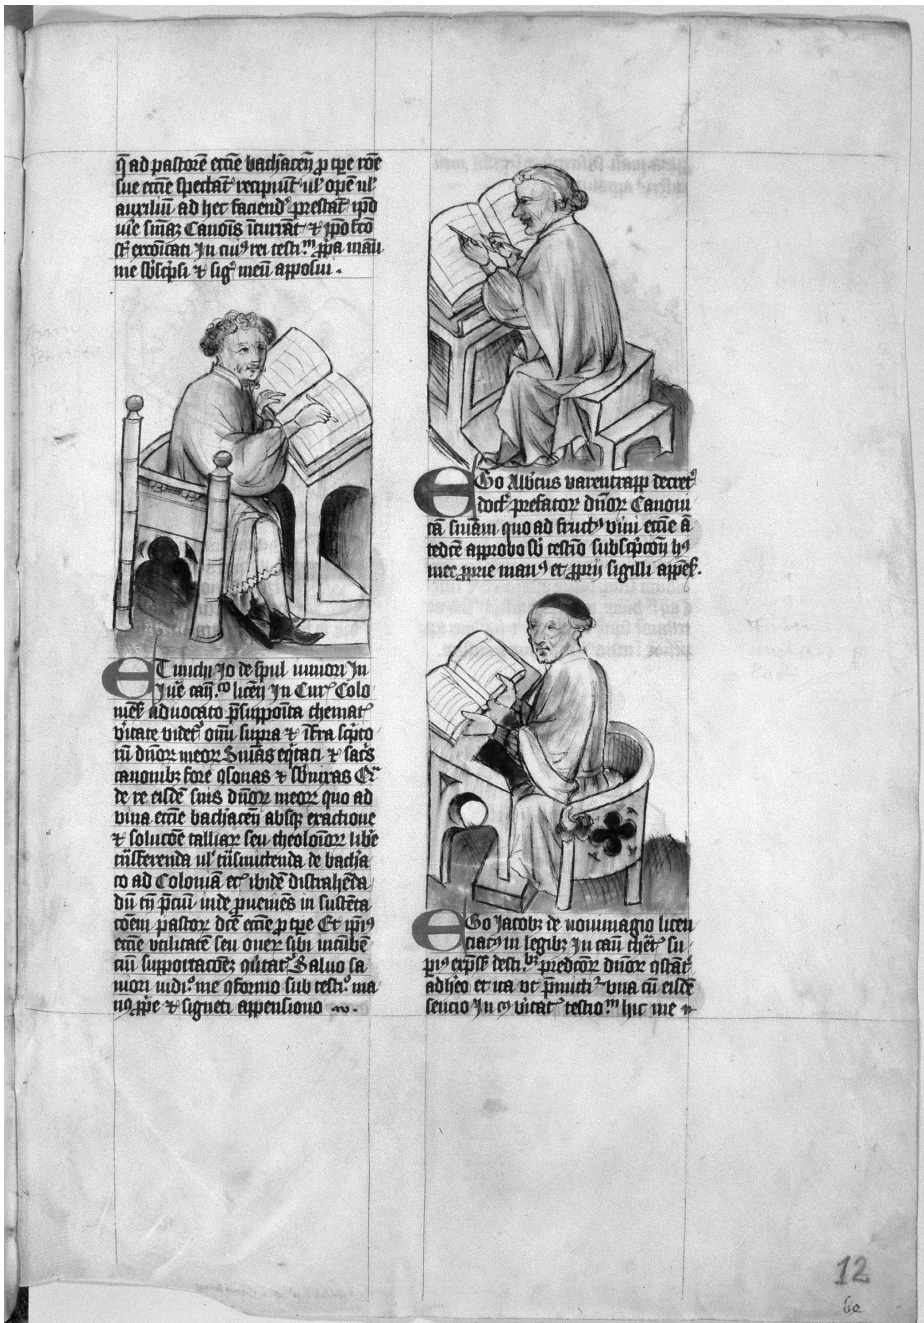 q̄ ad pastorē eccīe bachacen̄ ꝓ tp̄e rōe
sue eccīe spectāt recipiūt ul' opem ul'
auxiliū ad hec faciend' prestāt ip̄o
Canonis īcurrāt ⁊ ip̄o fc̄o
excōicati In cui' rei testi.m ꝓpa manu
me sbs̄cpsi ⁊ sig' meū apposui .
ET michi Jo de spul' iuniori In
Jure can.co licen̄ In Cur' Colo
nien̄ advocato p̄supposita themat'
v̄itate videt' oīm supra ⁊ īfra sc̄pto
rū dn̄or meor Sn̄ias eq̄tati ⁊ sac's
canonibꝫ fore ꝯsonas ⁊
de re eisdē suis dn̄or meor quo ad
vina eccīe bachacen̄ absqꝫ exactione
⁊ solucōe talliar seu theolonior lib'e
trāsferenda ul' trāsmittenda de bacha
co ad Coloniā et ibidē distrahēda
dū tn̄ p̄ciū inde ꝓveniēs in sustēta
cōem pastor dc̄e eccīe ꝓ tp̄e Et ip̄ius
eccīe vtilitatē seu oner sibi incūbē
ciū supportacōeꝫ ꝯvertat' Salvo sa
niori iudi.o me ꝯformo sub testi.o ma
nꝰ ꝓp̄e ⁊ signeti appensiono
EGo Alb'tus varentrapp decret'
doct' prefator dn̄or Canoni
cā sn̄iam quo ad fruct' vini eccīe ā
tedc̄e approbo sb' testīo subsc̄pcōn h'
mee ꝓprie man' et ꝓprij sigilli appēs.
EGo Jacobꝫ de novimagio licen
ciat' in legibꝫ In cau' su
p̄i' exp̄ss' desti.bꝫ predc̄or dn̄or ꝯstāt'
adheo et ita vt p̄mitti' vna cū eisdē
sencio In cui' v̄itat' testio.m hic me
12